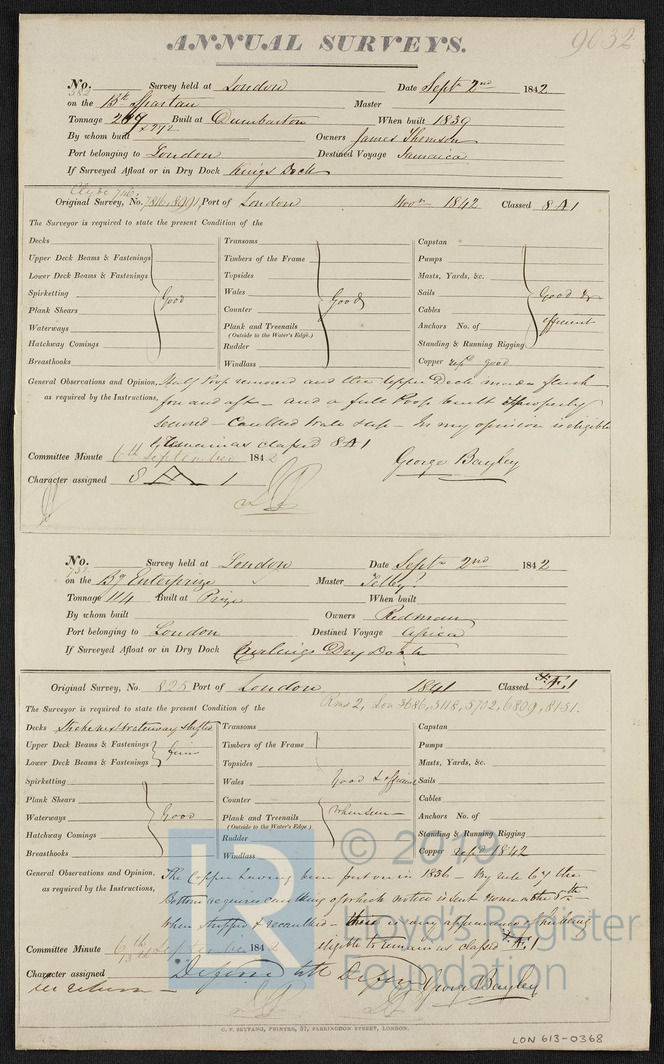 ANNUAL SURVEYS. 9632
No. 582 Survey held at London Date Sept 2nd 1842
on the Bk Spartan Master
Tonnage 267 Built at Dumbarton When built 1839
By whom built Owners James Thomson
Port belonging to London Destined Voyage Jamaica
If Surveyed Afloat or in Dry Dock Kings Dock
Original Survey, No. Port of London 1842 Classed 8 A 1
The Surveyor is required to state the present Condition of the
Decks Transoms Capstan
Upper Deck Beams & Fastenings Timbers of the Frame Pumps
Lower Deck Beams & Fastenings Topsides Masts, Yards, &c.
Spirketting Good Wales Good Sails Good &
Plank Shears Counter Cables efficient
Waterways Plank and Treenails Anchors No. of
(Outside to the Water's Edge.)
Hatchway Comings Rudder Standing & Running Rigging
Breasthooks Windlass Copper repd good
General Observations and Opinion, Half Poop removed and the upper Deck made flush
as required by the Instructions, for and aft - and a full Poop built & properly
secured - Caulked Wales - In my opinion is eligible
to remain as classed 8 A 1
Committee Minute 6th September 1842 George Bayley
Character assigned 8 A 1
No. Survey held at London Date Sept 2nd 1842
on the Bg Enterprize Master
Tonnage 114 Built at Prize When built
By whom built Owners Redman
Port belonging to London Destined Voyage Africa
If Surveyed Afloat or in Dry Dock Dry Dock
Original Survey, No. 825 Port of London 1841 Classed Æ 1
The Surveyor is required to state the present Condition of the
Decks Waterway Transoms Capstan
Upper Deck Beams & Fastenings Timbers of the Frame Pumps
Lower Deck Beams & Fastenings Topsides Masts, Yards, &c.
Spirketting Wales Good & efficient Sails
Plank Shears Counter Cables
Waterways Good Plank and Treenails where seen Anchors No. of
(Outside to the Water's Edge.)
Hatchway Comings Rudder Standing & Running Rigging
Breasthooks Windlass Copper repd 1842
General Observations and Opinion, The Copper having been put on in 1836 - By rule 64 the
as required by the Instructions, Bottom requires caulking of which notice is sent
When stripped & recaulked -
Committee Minute 6th September 1842 eligible to remain as classed Æ 1
Character assigned George Bayley
G. F. SEYFANG, PRINTER, 57, FARRINGDON STREET, LONDON.
LON 613-0368
LR
© 2019
Lloyd's Register
Foundation